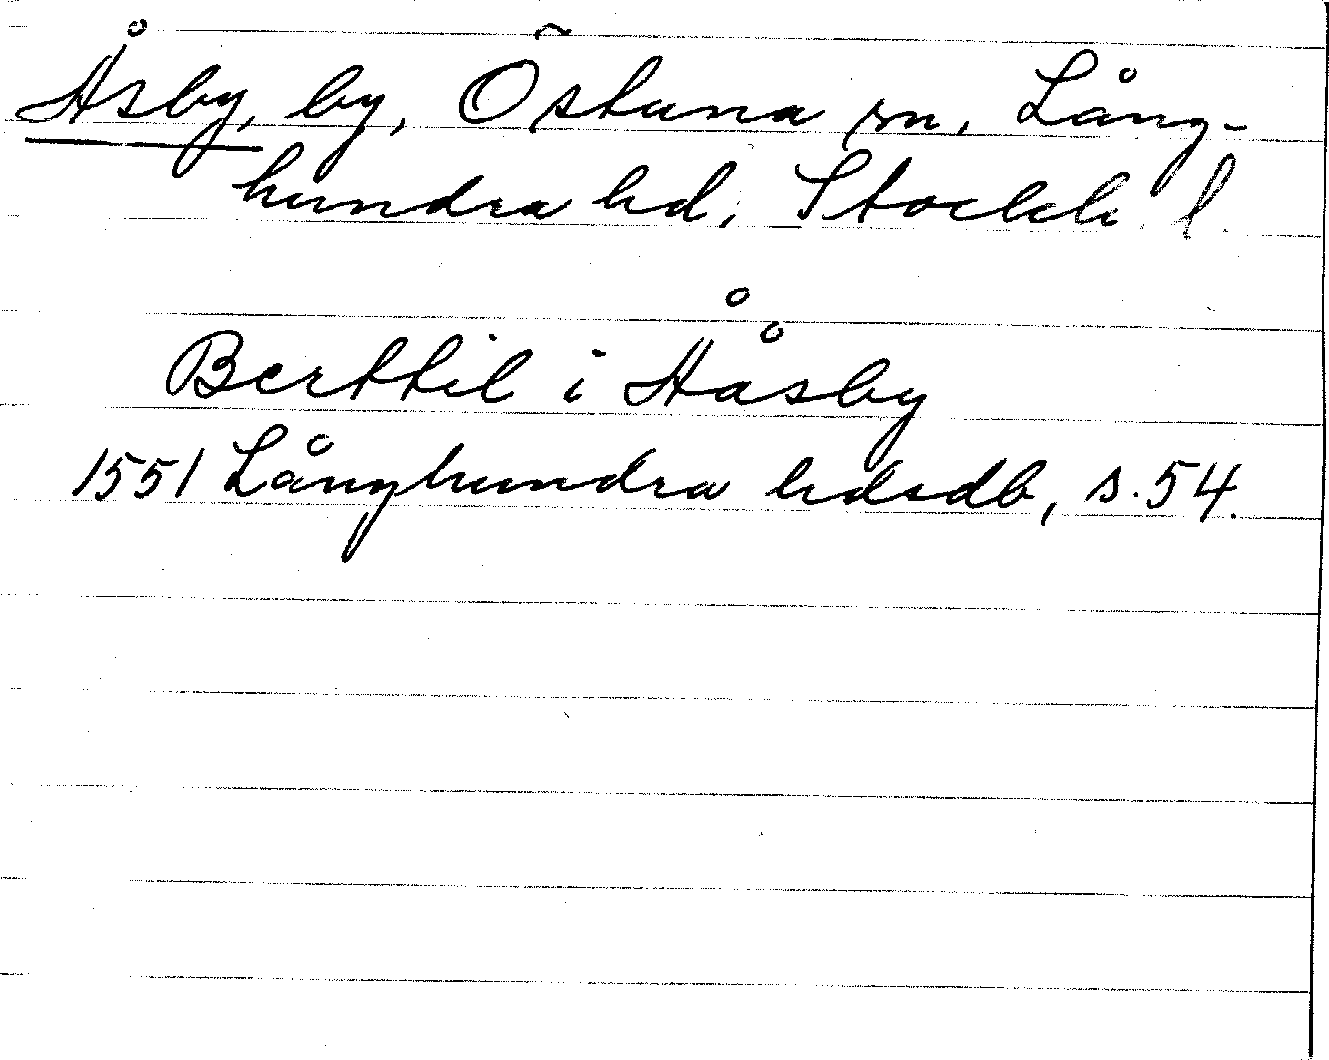 Åsby, by, Östuna sn, Lång-
hundra hd, Stockh. l.
Berttil i Ååsby
1551 Långhundra hdsdb, s. 54.